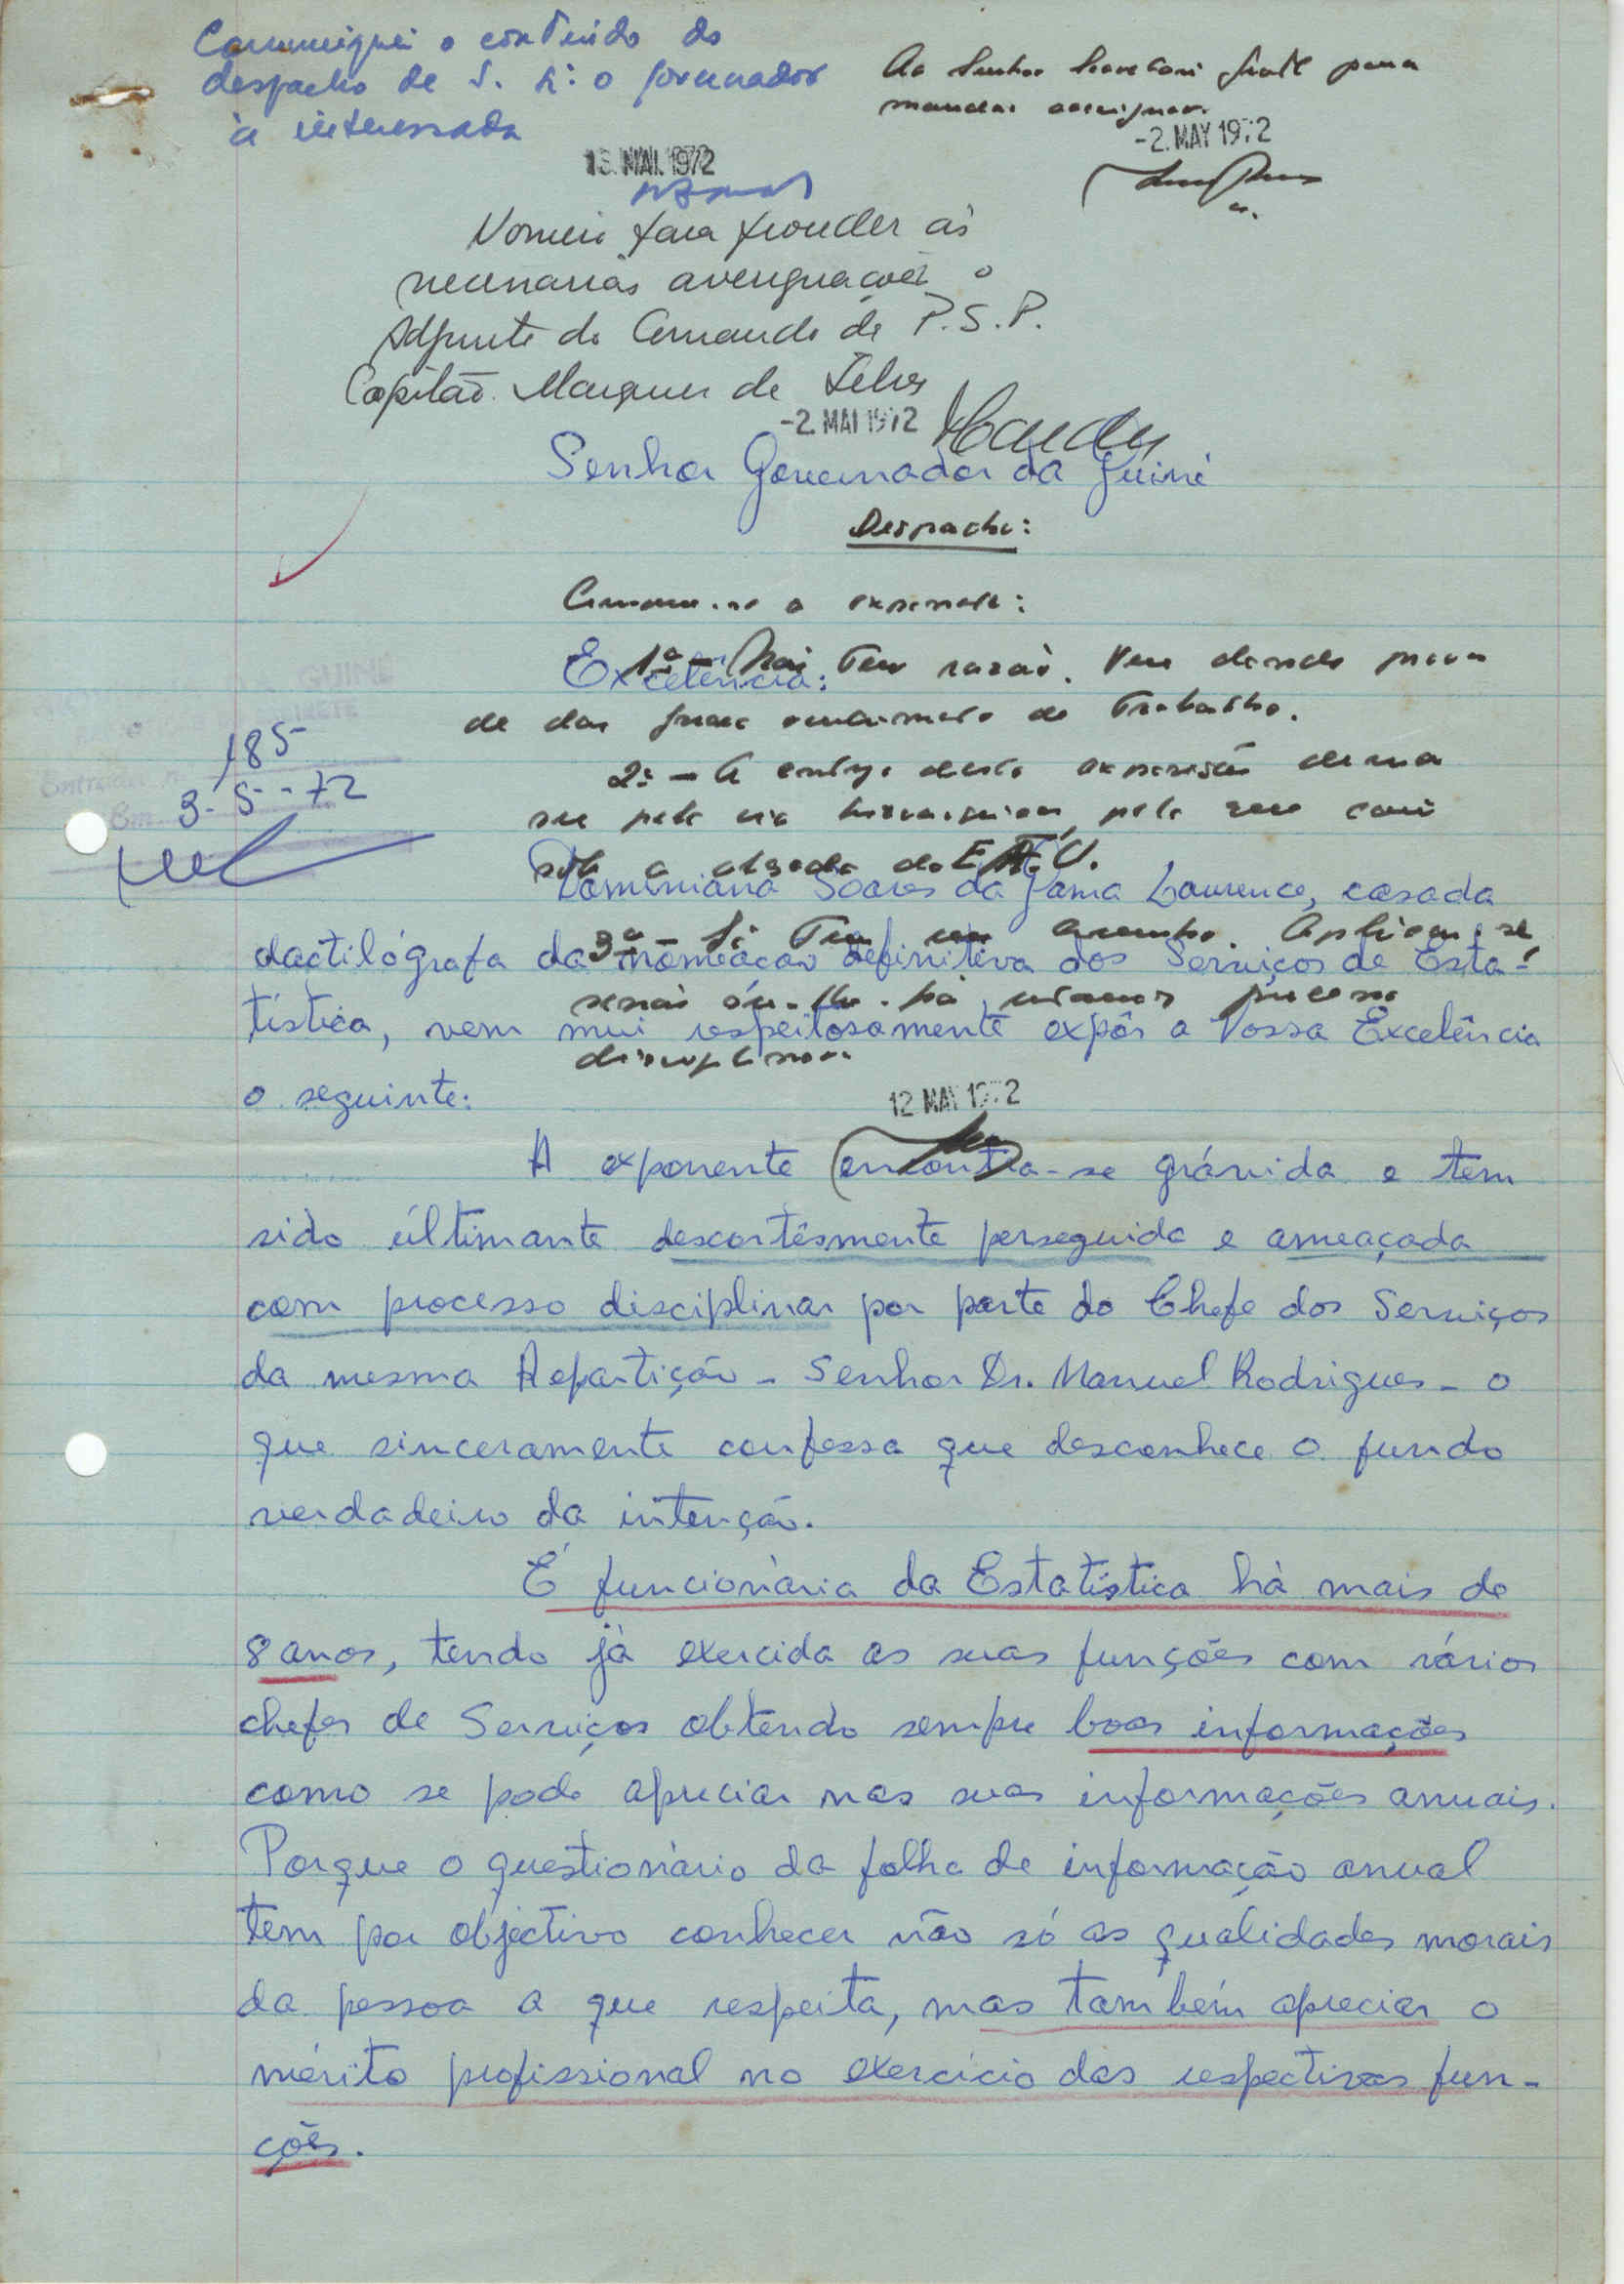 Comuniquei o conteúdo do
despacho de S. Exª o Governador
à interessada
13. MAI. 1972
Ao Senhor Secretário para
mandar averiguar.
-2. MAY 1972
Nomeio para proceder às
necessarias averiguações o
Adjunto do Comando da P.S.P.
Capitão Marques de
-2. MAI 1972
Senhor Governador da Guiné
Despacho:
Comunique-se a exponente:
Excelência:
1º - Não tem razão. Vem dando prova
de dar fraco rendimento de trabalho.
2º - A entrega desta exposição devia
ser pela via hierarquica, pelo que caiu
sob a alçada do E.F.U.
GUINÉ
Entrada n.
185
Em 3-5-72
Dominiana Soares da Gama Laurence, casada
3º - Aplicar-se
dactilógrafa da nomeação definitiva dos Serviços de Esta-
processo
tística, vem mui respeitosamente expôr a Vossa Excelência
disciplinar.
o seguinte:
12 MAY 1972
A exponente encontra-se grávida e tem
sido últimante descortêsmente perseguida e ameaçada
com processo disciplinar por parte do Chefe dos Serviços
da mesma Repartição - Senhor Dr. Manuel Rodrigues - o
que sinceramente confessa que desconhece o fundo
verdadeiro da intenção.
É funcionária da Estatística há mais de
8 anos, tendo já exercida as suas funções com vários
chefes de Serviços obtendo sempre boas informações
como se pode apreciar nas suas informações anuais.
Porque o questionário da folha de informação anual
tem por objectivo conhecer não só as qualidades morais
da pessoa a que respeita, mas também apreciar o
mérito profissional no exercício das respectivas fun-
ções.